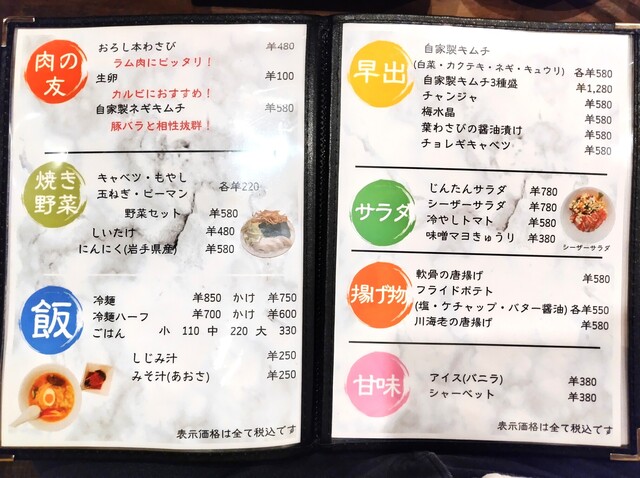 肉の友
おろし本わさび ¥480
ラム肉にピッタリ！
生卵 ¥100
カルビにおすすめ！
自家製ネギキムチ ¥580
豚バラと相性抜群！
焼き野菜
キャベツ・もやし
玉ねぎ・ピーマン 各¥220
野菜セット ¥580
しいたけ ¥480
にんにく(岩手県産) ¥580
飯
冷麺 ¥850 かけ ¥750
冷麺ハーフ ¥700 かけ ¥600
ごはん 小 110 中 220 大 330
しじみ汁 ¥250
みそ汁(あおさ) ¥250
表示価格は全て税込です
早出
自家製キムチ
(白菜・カクテキ・ネギ・キュウリ) 各¥580
自家製キムチ3種盛 ¥1,280
チャンジャ ¥580
梅水晶 ¥580
葉わさびの醤油漬け ¥580
チョレギキャベツ ¥580
サラダ
じんたんサラダ ¥780
シーザーサラダ ¥780
冷やしトマト ¥580
味噌マヨきゅうり ¥380
シーザーサラダ
揚げ物
軟骨の唐揚げ ¥580
フライドポテト
(塩・ケチャップ・バター醤油) 各¥550
川海老の唐揚げ ¥580
甘味
アイス(バニラ) ¥380
シャーベット ¥380
表示価格は全て税込です